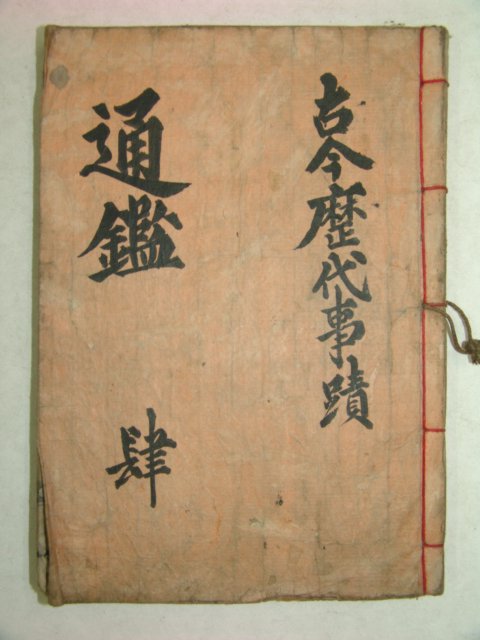 古今歷代事蹟
通鑑
肆